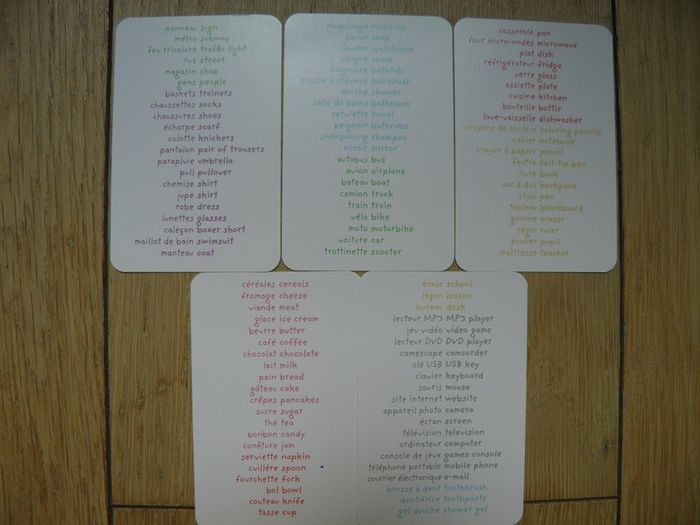 panneau sign
métro subway
feu tricolore traffic light
rue street
magasin shop
gens people
baskets trainers
chaussettes socks
chaussures shoes
écharpe scarf
culotte knickers
pantalon pair of trousers
parapluie umbrella
pull pullover
chemise shirt
jupe skirt
robe dress
lunettes glasses
caleçon boxer short
maillot de bain swimsuit
manteau coat
maquillage make-up
savon soap
lavabo washbasin
peigne comb
baignoire bathtub
brosse à cheveux hairbrush
douche shower
salle de bains bathroom
serviette towel
peignoir bathrobe
shampooing shampoo
miroir mirror
autobus bus
avion airplane
bateau boat
camion truck
train train
vélo bike
moto motorbike
voiture car
trottinette scooter
casserole pan
four micro-ondes microwave
plat dish
réfrigérateur fridge
verre glass
assiette plate
cuisine kitchen
bouteille bottle
lave-vaisselle dishwasher
crayons de couleur coloring pencils
cahier notebook
crayon à papier pencil
feutre felt-tip pen
livre book
sac à dos backpack
stylo pen
tableau blackboard
gomme eraser
règle ruler
écolier pupil
maîtresse teacher
céréales cereals
fromage cheese
viande meat
glace ice cream
beurre butter
café coffee
chocolat chocolate
lait milk
pain bread
gâteau cake
crêpes pancakes
sucre sugar
thé tea
bonbon candy
confiture jam
serviette napkin
cuillère spoon
fourchette fork
bol bowl
couteau knife
tasse cup
école school
leçon lesson
bureau desk
lecteur MP3 MP3 player
jeu vidéo video game
lecteur DVD DVD player
camescope camcorder
clé USB USB key
clavier keyboard
souris mouse
site internet website
appareil photo camera
écran screen
télévision television
ordinateur computer
console de jeux games console
téléphone portable mobile phone
courrier électronique e-mail
brosse à dent toothbrush
dentifrice toothpaste
gel douche shower gel